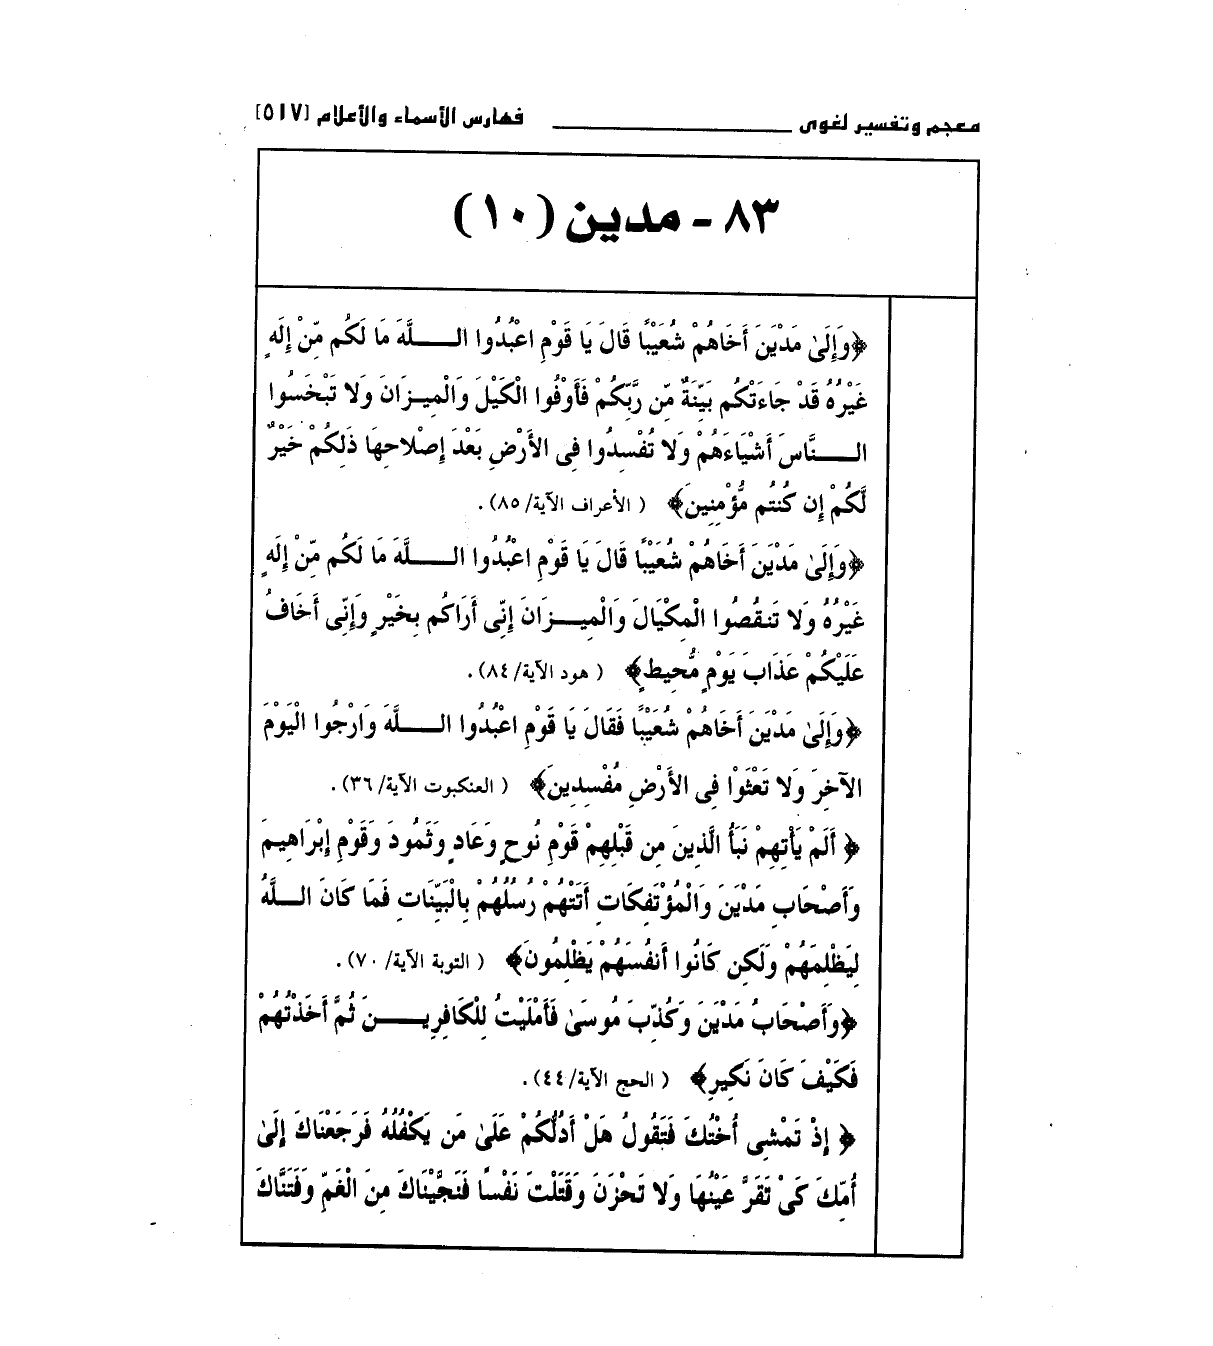 معجم وتفسير لغوى ــــــــــ فهارس الأسماء والأعلام [٥١٧]
٨٣ - مدين (١٠)
﴿وَإِلَىٰ مَدْيَنَ أَخَاهُمْ شُعَيْبًا قَالَ يَا قَوْمِ اعْبُدُوا اللَّهَ مَا لَكُم مِّنْ إِلَهٍ
غَيْرُهُ قَدْ جَاءَتْكُم بَيِّنَةٌ مِّن رَّبِّكُمْ فَأَوْفُوا الْكَيْلَ وَالْمِيزَانَ وَلا تَبْخَسُوا
النَّاسَ أَشْيَاءَهُمْ وَلا تُفْسِدُوا فِى الأَرْضِ بَعْدَ إِصْلاحِهَا ذَلِكُمْ خَيْرٌ
لَّكُمْ إِن كُنتُم مُّؤْمِنِينَ﴾ ( الأعراف الآية/ ٨٥).
﴿وَإِلَىٰ مَدْيَنَ أَخَاهُمْ شُعَيْبًا قَالَ يَا قَوْمِ اعْبُدُوا اللَّهَ مَا لَكُم مِّنْ إِلَهٍ
غَيْرُهُ وَلا تَنقُصُوا الْمِكْيَالَ وَالْمِيزَانَ إِنِّى أَرَاكُم بِخَيْرٍ وَإِنِّى أَخَافُ
عَلَيْكُمْ عَذَابَ يَوْمٍ مُّحِيطٍ﴾ ( هود الآية/ ٨٤).
﴿وَإِلَىٰ مَدْيَنَ أَخَاهُمْ شُعَيْبًا فَقَالَ يَا قَوْمِ اعْبُدُوا اللَّهَ وَارْجُوا الْيَوْمَ
الآخِرَ وَلا تَعْثَوْا فِى الأَرْضِ مُفْسِدِينَ﴾ ( العنكبوت الآية/ ٣٦).
﴿ أَلَمْ يَأْتِهِمْ نَبَأُ الَّذِينَ مِن قَبْلِهِمْ قَوْمِ نُوحٍ وَعَادٍ وَثَمُودَ وَقَوْمِ إِبْرَاهِيمَ
وَأَصْحَابِ مَدْيَنَ وَالْمُؤْتَفِكَاتِ أَتَتْهُمْ رُسُلُهُمْ بِالْبَيِّنَاتِ فَمَا كَانَ اللَّهُ
لِيَظْلِمَهُمْ وَلَكِن كَانُوا أَنفُسَهُمْ يَظْلِمُونَ﴾ ( التوبة الآية/ ٧٠).
﴿وَأَصْحَابُ مَدْيَنَ وَكُذِّبَ مُوسَىٰ فَأَمْلَيْتُ لِلْكَافِرِينَ ثُمَّ أَخَذْتُهُمْ
فَكَيْفَ كَانَ نَكِيرِ﴾ ( الحج الآية/ ٤٤).
﴿ إِذْ تَمْشِى أُخْتُكَ فَتَقُولُ هَلْ أَدُلُّكُمْ عَلَىٰ مَن يَكْفُلُهُ فَرَجَعْنَاكَ إِلَىٰ
أُمِّكَ كَىْ تَقَرَّ عَيْنُهَا وَلا تَحْزَنَ وَقَتَلْتَ نَفْسًا فَنَجَّيْنَاكَ مِنَ الْغَمِّ وَفَتَنَّاكَ